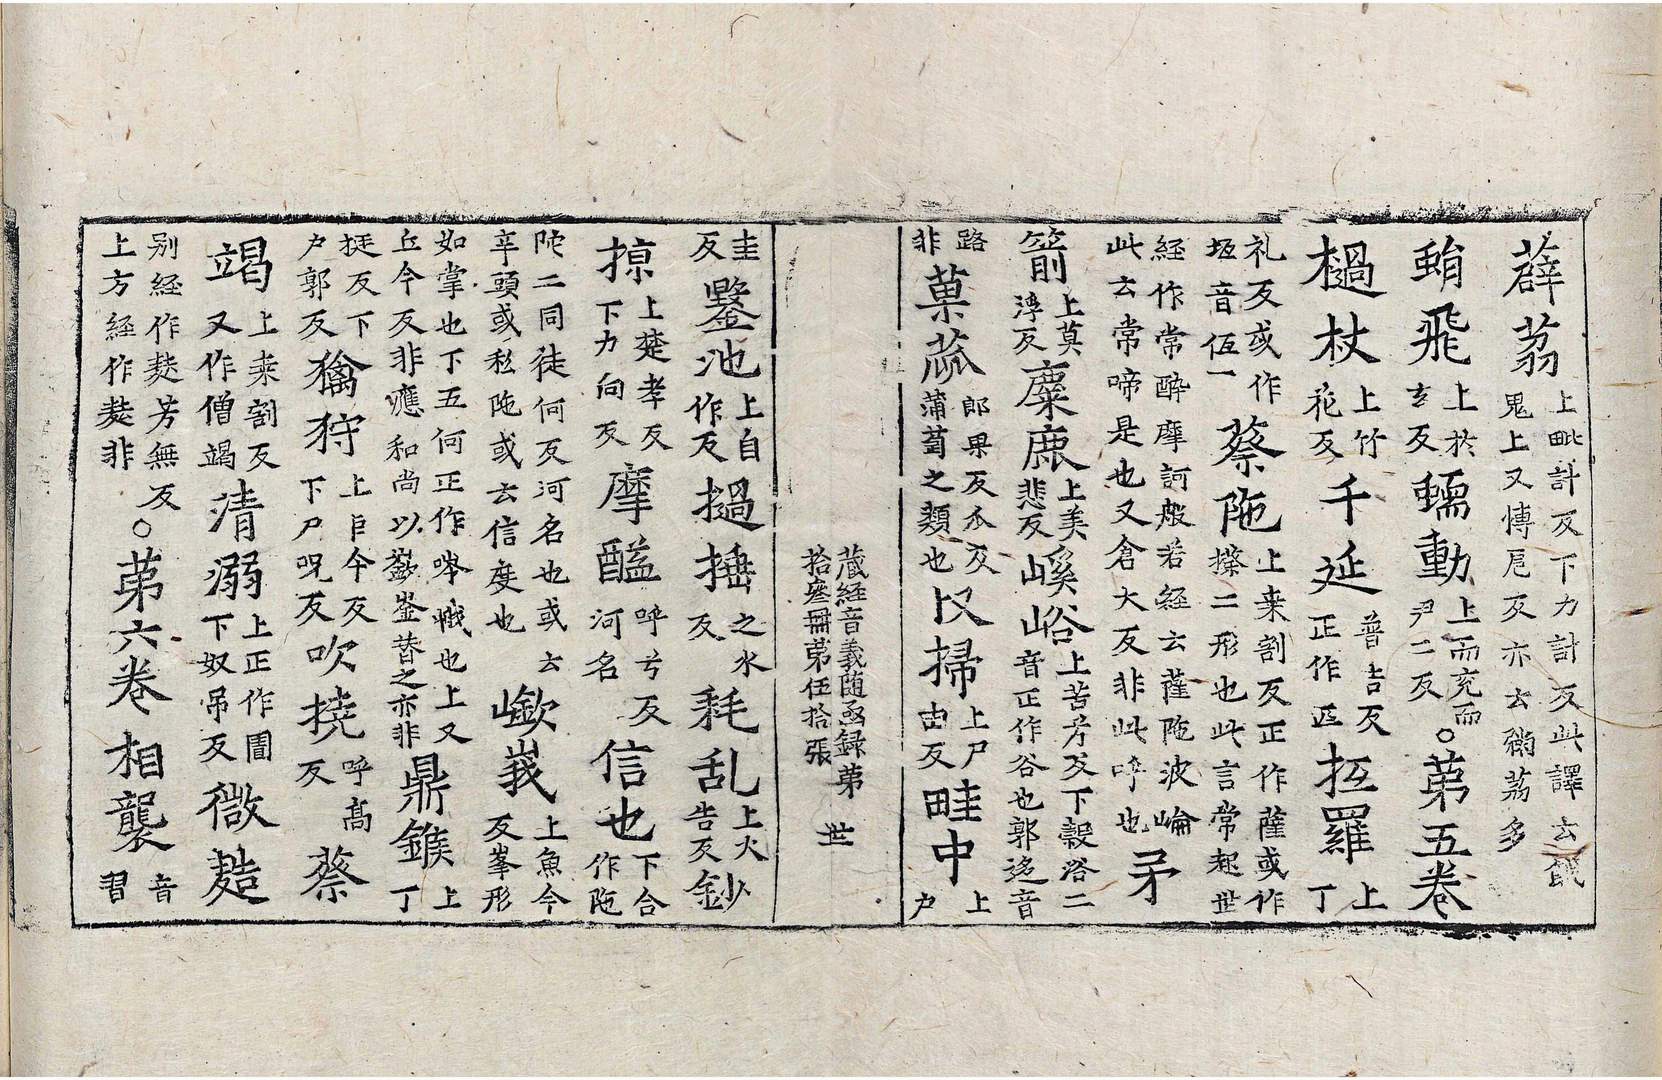 薜荔上毗計反下力計反此譯云餓鬼上又愽戹反亦云䉲荔多
蜎飛上於玄反蠕動上而兖而尹二反○第五卷
檛杖上竹花反千延普吉反正作匹抂羅上丁
礼反或作坻音佰一蔡陁上来割反正作薩或作㩟二形也此言常起世
經作常醉摩訶般若經云薩陁波崘此云常啼是也又倉大反非此呼也矛
箭上莫浮反麋鹿上美悲反㟭峪上苦兮反下榖浴二音正作谷也郭迻音
路非菓蓏郎果反瓜反蒲萄之類也㕥掃上尸由反畦中上户
藏經音義随函録第拾叁冊第伍拾張 世
圭反鑿池上自作反撾捶之水反耗乱上火告反鈔
掠上楚孝反下力向反摩醯呼兮反河名信也下合作陁
陀二同徒何反河名也或云辛頭或私陁或云信度也𡾲峩上魚今反峯形
如掌也下五何正作㟁峨也上又丘今反非應和尚以嶔崟替之亦非鼎鍭上丁
挺反下户郭反擒狩上巨今反下尸呪反吹撓呼髙反蔡
竭上来割反又作僧竭清溺上正作圊下奴吊反微䴬
別經作䴸芳無反上方經作䴬非○第六卷相襲音習